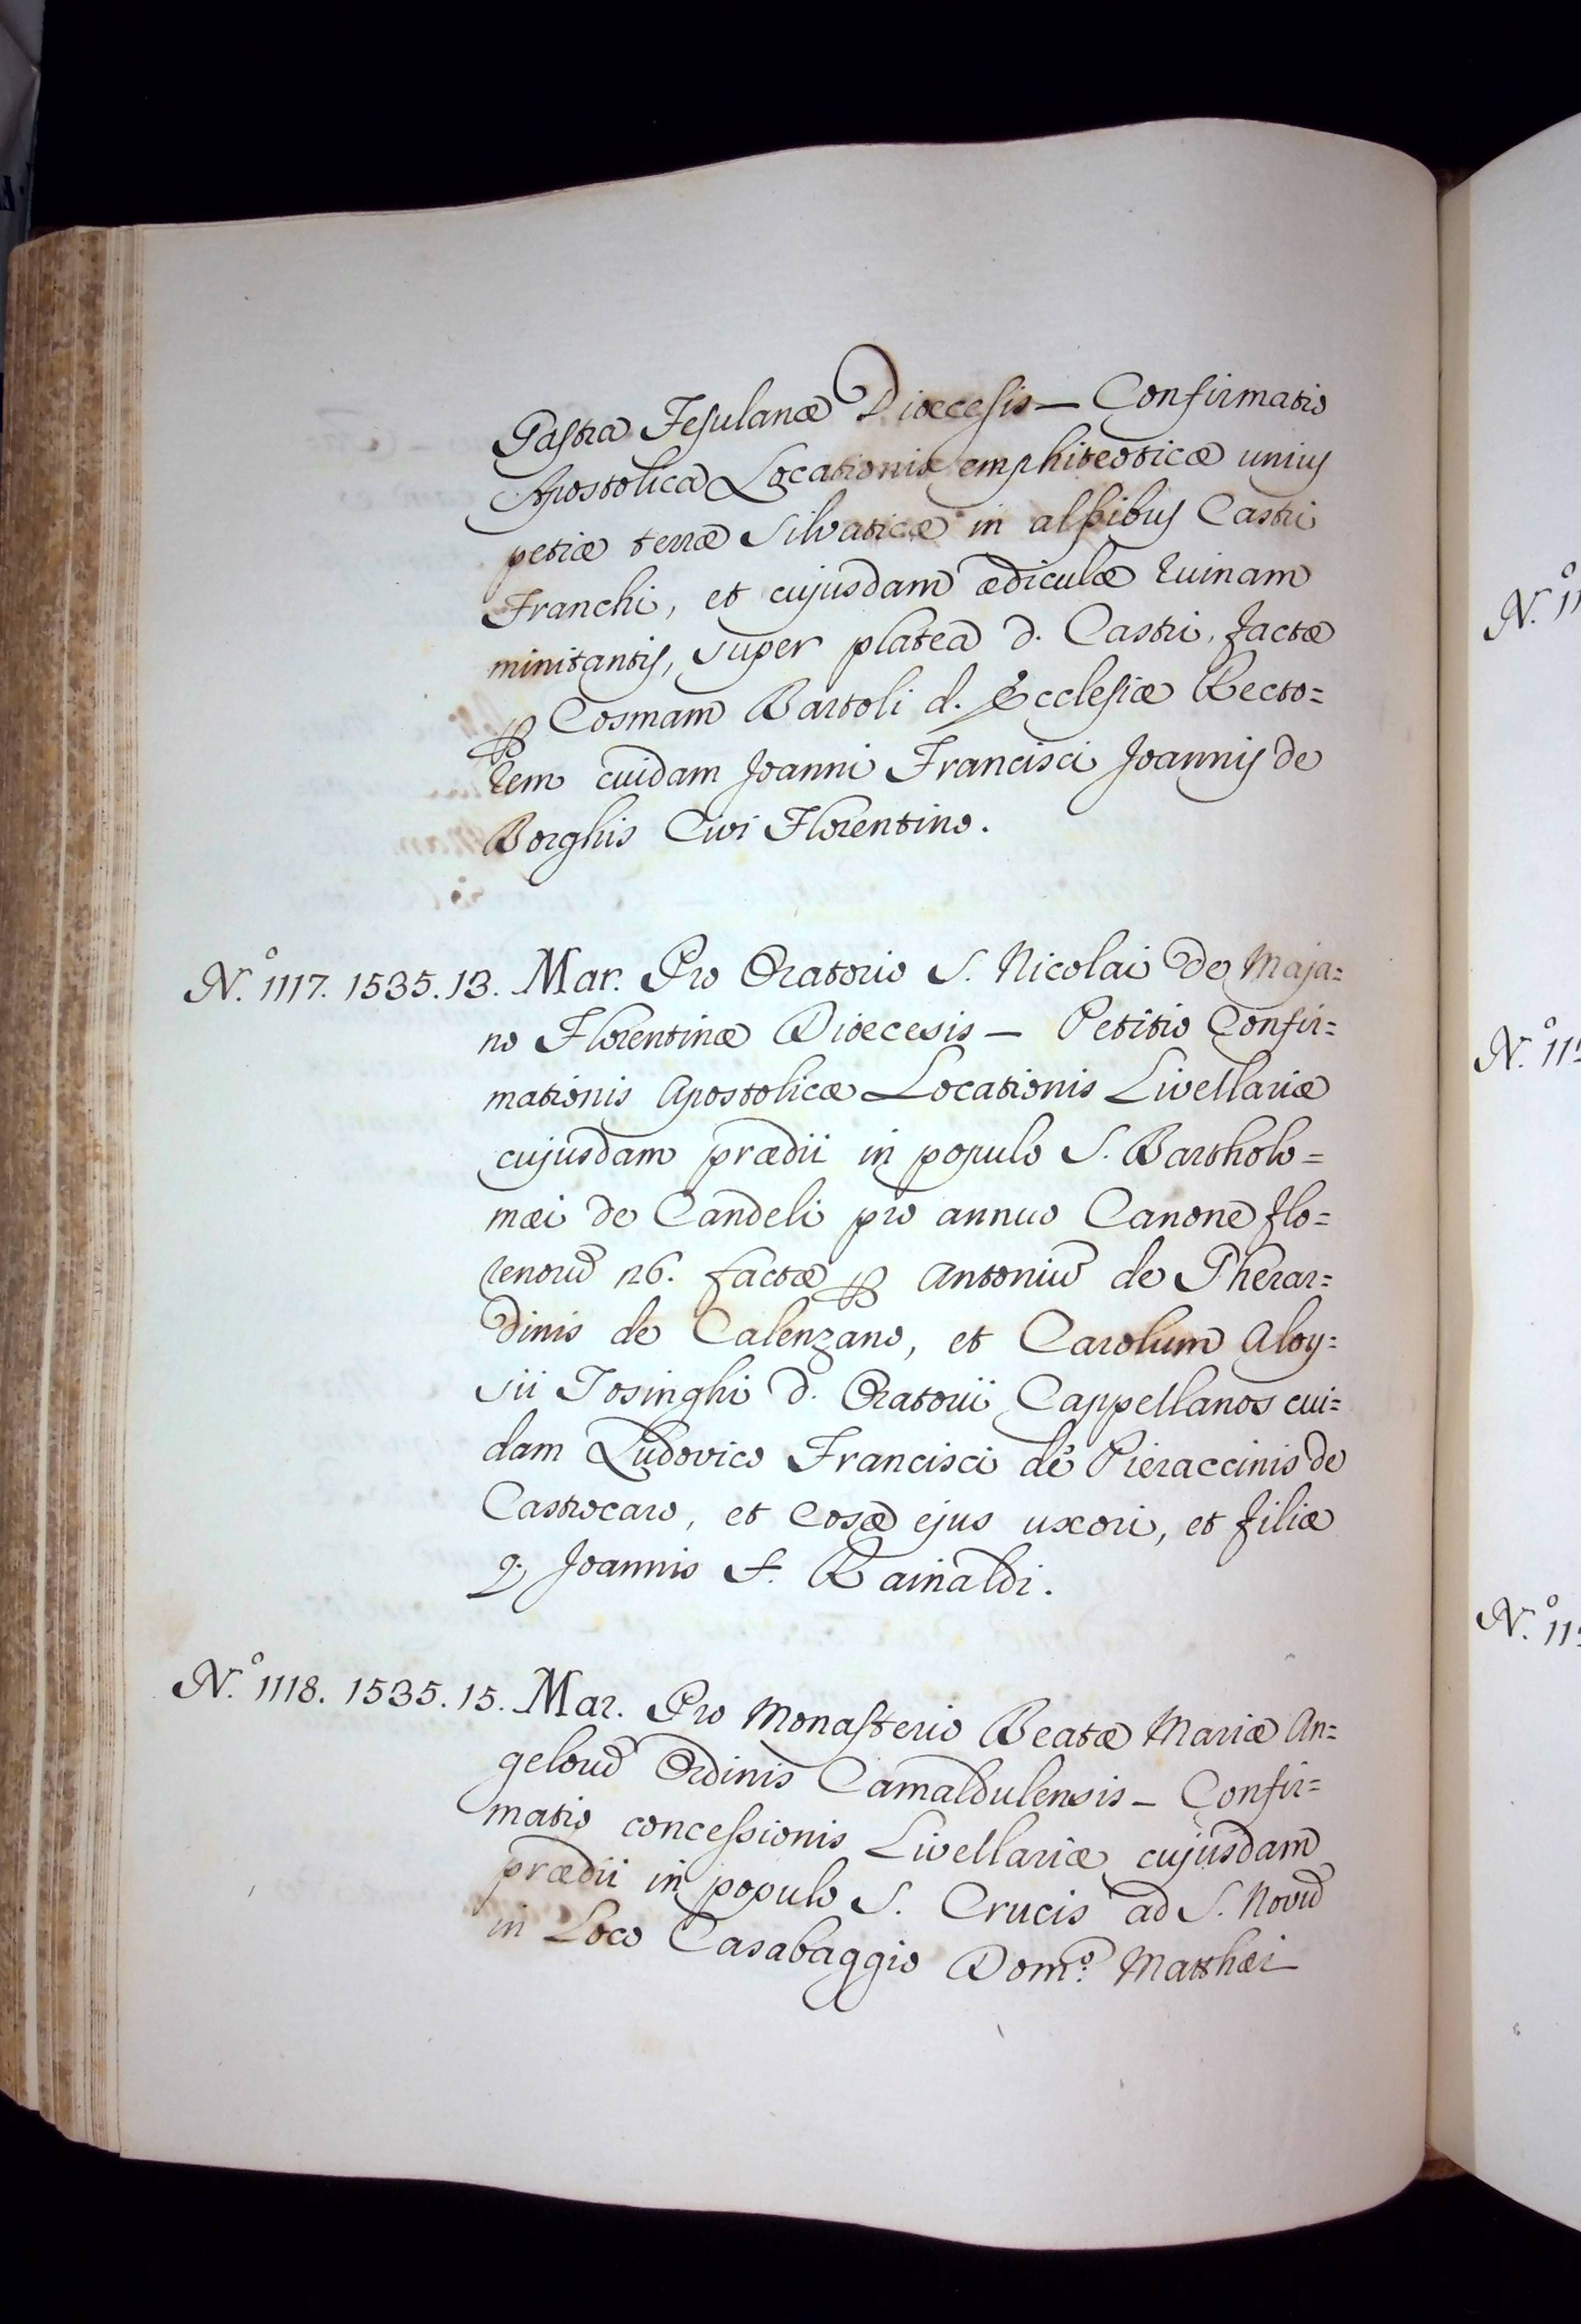 Pastra Fesulanæ Dioecesis — Confirmatio
Apostolica Locationis emphiteoticæ unius
petiæ terræ silvaticæ in alpibus Castri
Franchi, et cujusdam ædiculæ ruinam
minitantis, super platea d. Castri, factæ
ꝑ Cosmam Bartoli d. Ecclesiæ Recto=
rem cuidam Joanni Francisci Joannis de
Borghis Civi Florentino.
N.º 1117. 1535. 13. Mar. Pro Oratorio S. Nicolai de Maja=
no Florentinæ Dioecesis — Petitio Confir=
mationis Apostolicæ Locationis Livellariæ
cujusdam prædii in populo S. Bartholo=
mæi de Candeli pro annuo Canone flo=
renorũ n6. factæ ꝑ Antoniũ de Gherar=
dinis de Calenzano, et Carolum Aloy=
sii Tosinghi d. Oratorii Cappellanos cui=
dam Ludovico Francisci de Pieraccinis de
Castrocaro, et Cosæ ejus uxori, et filiæ
q. Joannis S. Rainaldi.
N.º 1118. 1535. 15. Mar. Pro Monasterio Beatæ Mariæ An=
gelorũ Ordinis Camaldulensis — Confir=
matio concessionis Livellariæ cujusdam
prædii in populo S. Crucis ad S. Novũ
in Loco Casabaggio Dom.º Matthæi
N.º 11
N.º 11
N.º 11